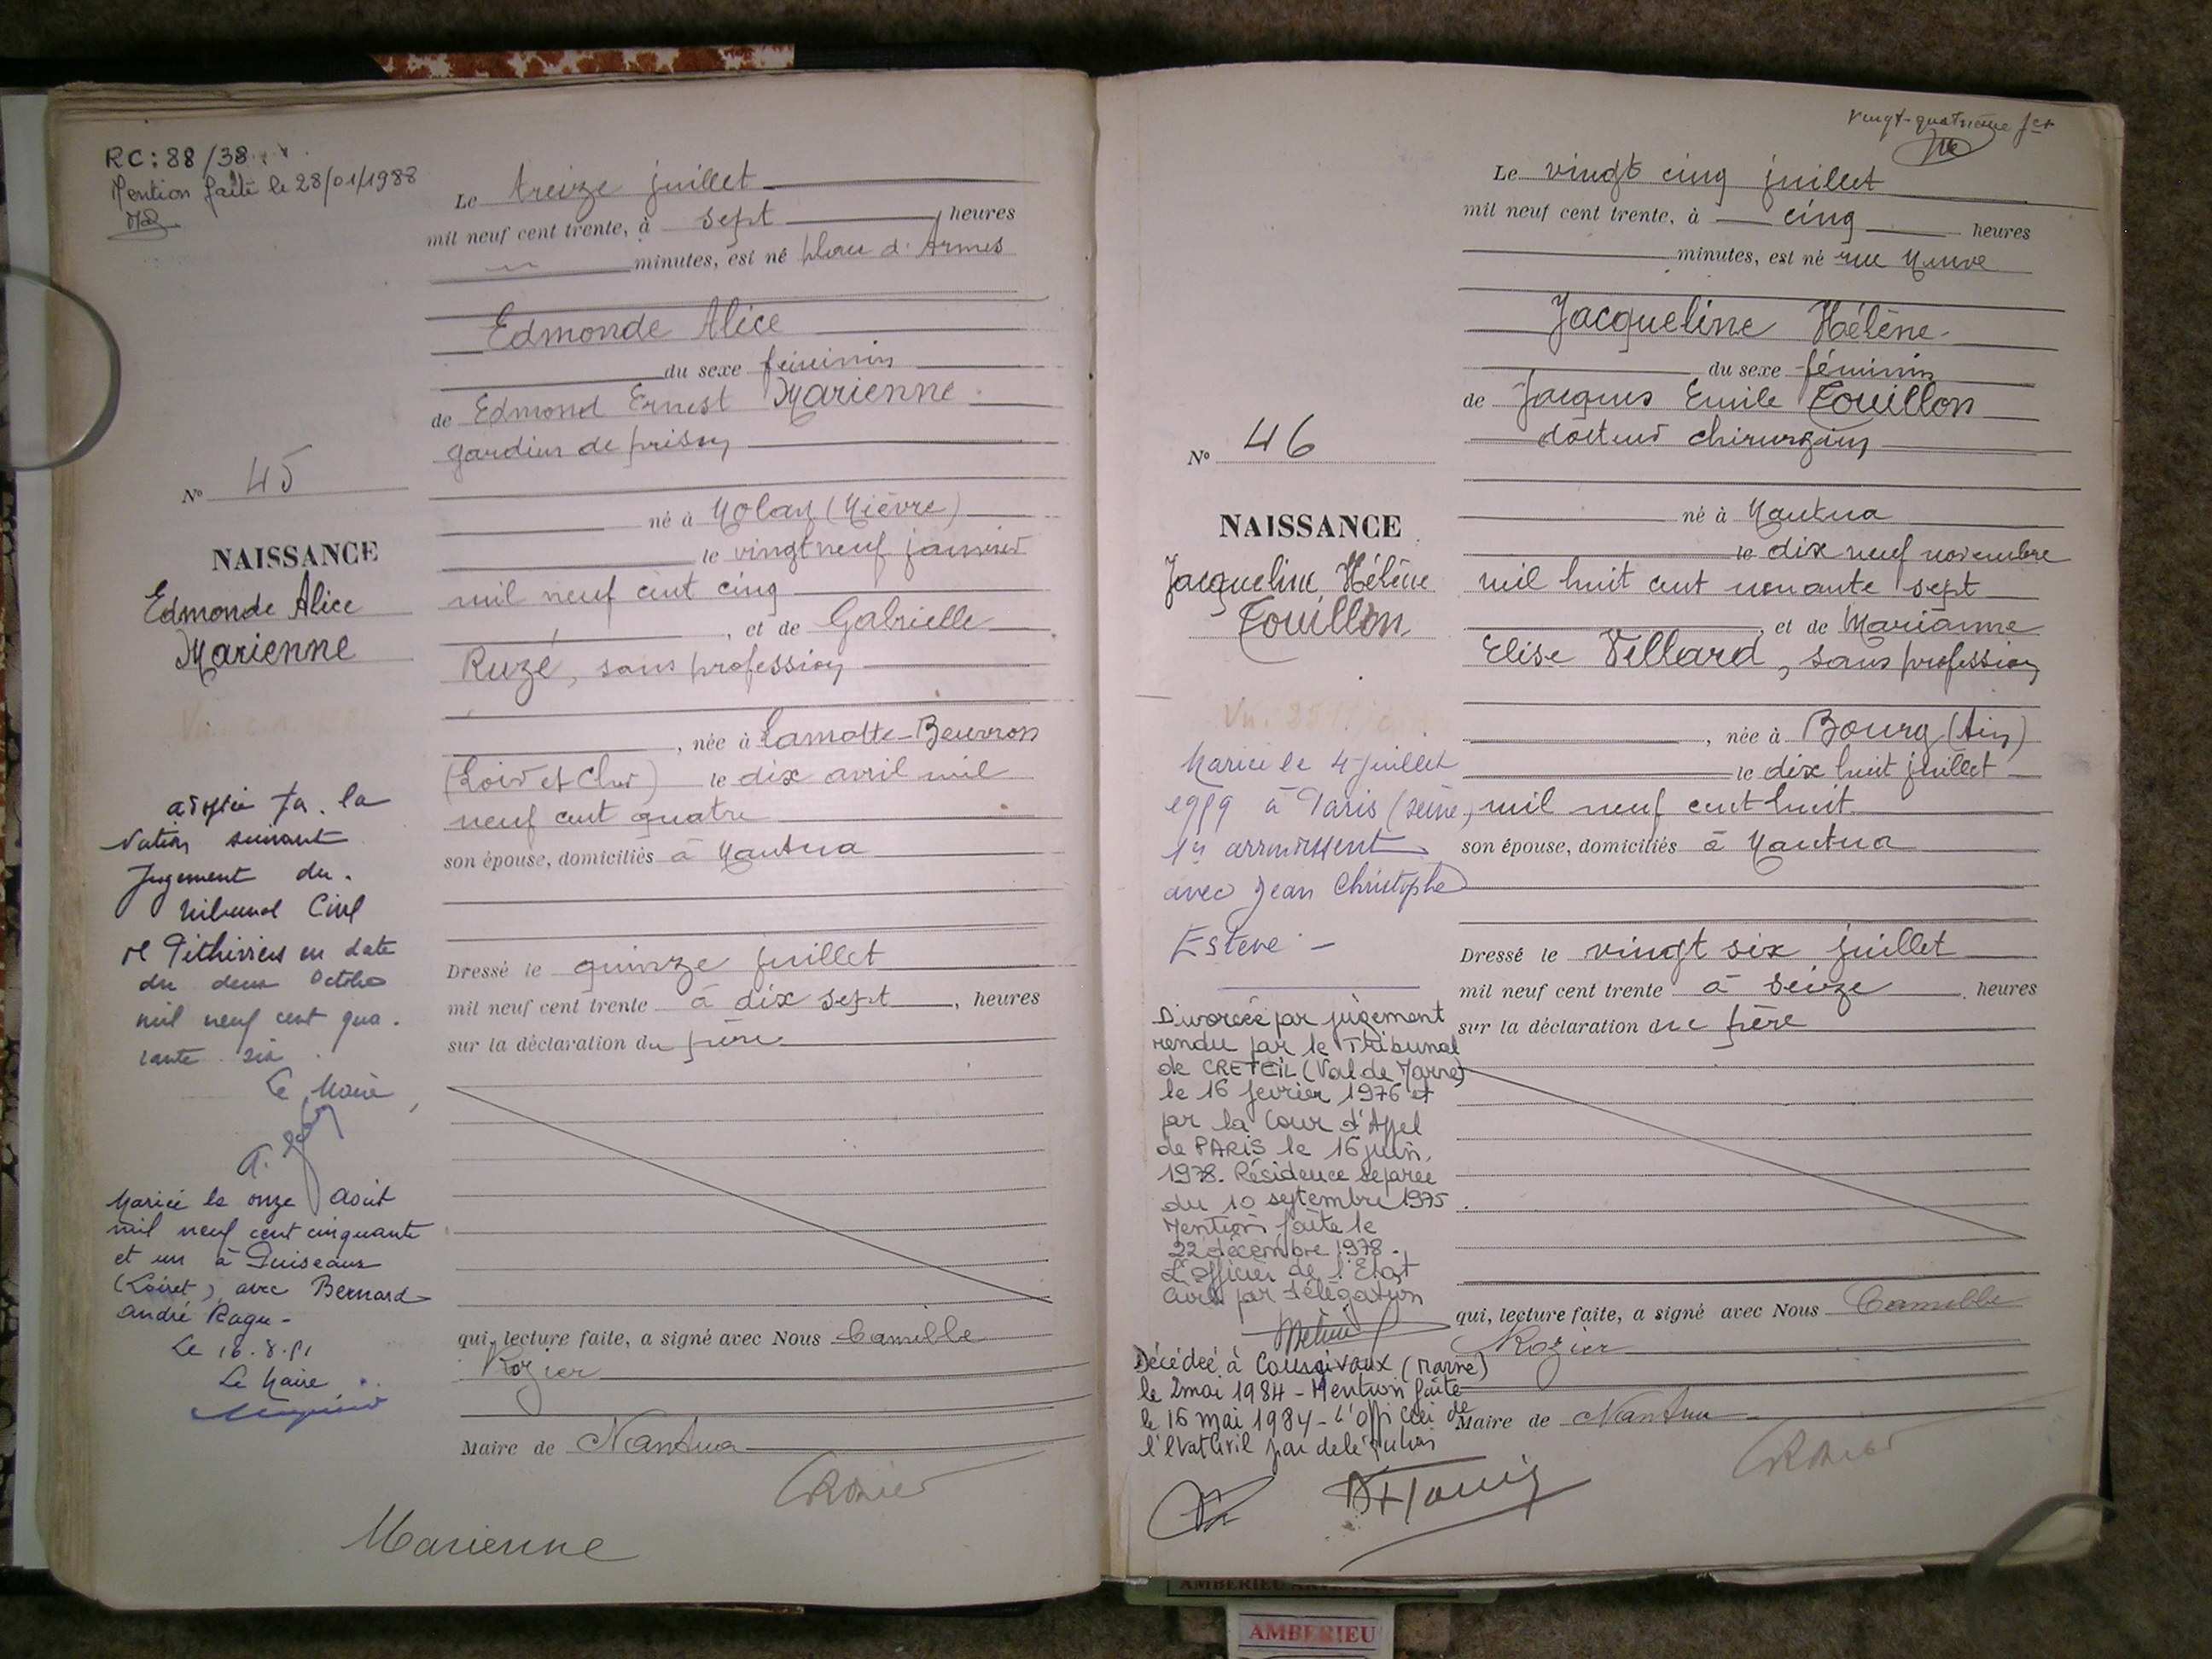 RC: 88/38
Mention faite le 28/01/1988
Le treize juillet
mil neuf cent trente, à sept heures
minutes, est né place d'Armes
Edmonde Alice
du sexe féminin
de Edmond Ernest Marienne
gardien de prison
né à Nolay (Nièvre)
le vingt neuf janvier
mil neuf cent cinq
, et de Gabrielle
Ruzé, sans profession
, née à Lamotte-Beuvron
(Loir et Cher) le dix avril mil
neuf cent quatre
son épouse, domiciliés à Nantua
Dressé le quinze juillet
mil neuf cent trente à dix sept, heures
sur la déclaration du père
qui, lecture faite, a signé avec Nous Camille
Rozier
Maire de Nantua
CRozier
Marienne
No 45
NAISSANCE
Edmonde Alice
Marienne
adoptée par la
Nation suivant
Jugement du
tribunal Civil
de Pithiviers en date
du deux Octobre
mil neuf cent qua-
rante six
Le Maire,
Mariée le onze Août
mil neuf cent cinquante
et un à Puiseaux
(Loiret), avec Bernard
André Ragu-
Le 16.8.51
Le Maire
vingt-quatrième fet
Le vingt cinq juillet
mil neuf cent trente, à cinq heures
minutes, est né rue Neuve
Jacqueline Hélène
du sexe féminin
de Jacques Emile Touillon
docteur chirurgien
né à Nantua
le dix neuf novembre
mil huit cent nonante sept
, et de Marianne
Elise Villard, sans profession
, née à Bourg (Ain)
le dix huit juillet
mil neuf cent huit
son épouse, domiciliés à Nantua
Dressé le vingt six juillet
mil neuf cent trente à seize heures
sur la déclaration du père
qui, lecture faite, a signé avec Nous Camille
Rozier
Maire de Nantua
CRozier
No 46
NAISSANCE
Jacqueline, Hélène
Touillon
Mariée le 4 juillet
1959 à Paris (Seine)
1er arrondissent
avec Jean Christophe
Estève -
Divorcée par jugement
rendu par le Tribunal
de CRETEIL (Val de Marne)
le 16 février 1976 et
par la Cour d'Appel
de PARIS le 16 juin
1978. Résidence séparée
du 10 septembre 1975.
Mention faite le
22 décembre 1978.
L'officier de l'Etat
Civil par délégation
Décédée à Courgivaux (Marne)
le 2 mai 1984 - Mention faite
le 16 mai 1984 - L'officier de
l'Etat Civil par délégation
AMBERIEU
AMBERIEU